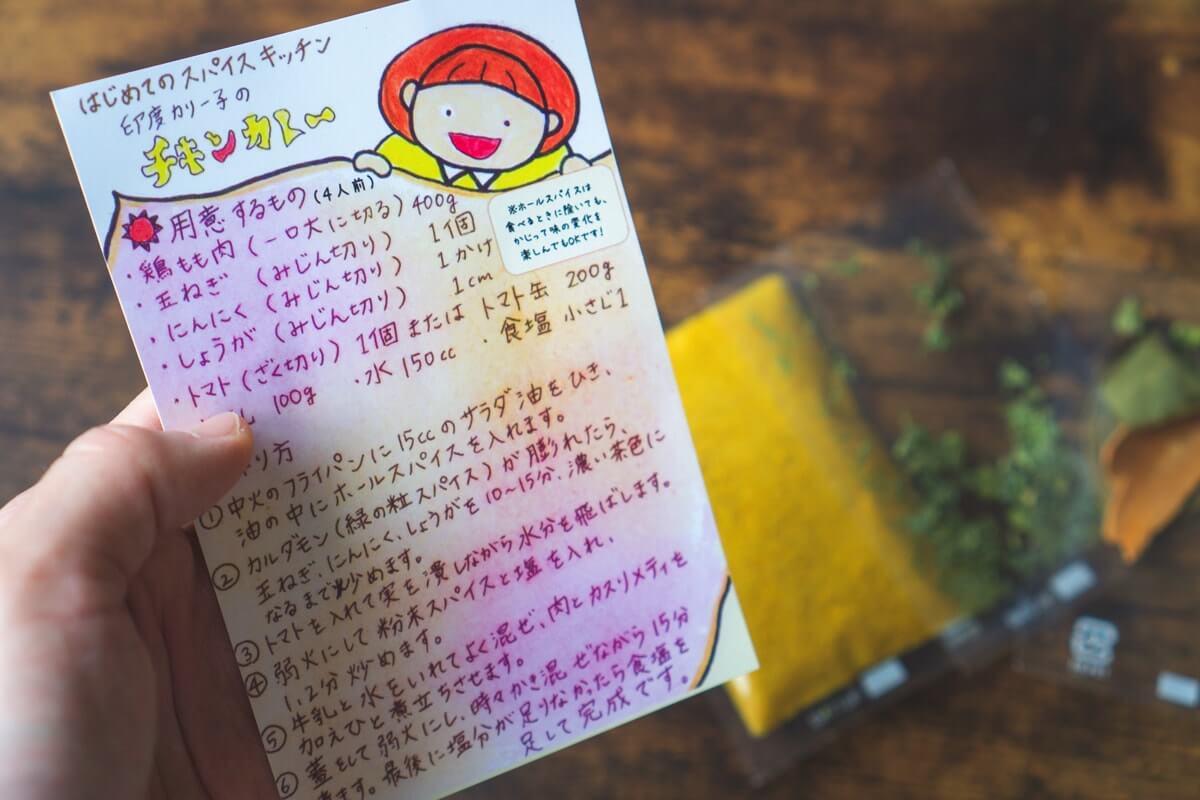 はじめてのスパイスキッチン
印度カリー子の
チキンカレー
用意するもの(4人前)
・鶏もも肉(一口大に切る)400g
・玉ねぎ(みじん切り)1個
・にんにく(みじん切り)1かけ
・しょうが(みじん切り)1cm
・トマト(ざく切り)1個またはトマト缶 200g
100g ・水150cc ・食塩 小さじ1
※ホールスパイスは
食べるときに除いても、
かじって味の変化を
楽しんでもOKです!
り方
①中火のフライパンに15ccのサラダ油をひき、
油の中にホールスパイスを入れます。
②カルダモン(緑の粒スパイス)が膨れたら、
玉ねぎ、にんにく、しょうがを10~15分、濃い茶色に
なるまで炒めます。
③トマトを入れて実を潰しながら水分を飛ばします。
④弱火にして粉末スパイスと塩を入れ、
1,2分炒めます。
⑤牛乳と水をいれてよく混ぜ、肉とカスリメティを
加えひと煮立ちさせます。
⑥蓋をして弱火にし、時々かき混ぜながら15分
煮ます。最後に塩分が足りなかったら食塩を
足して完成です。